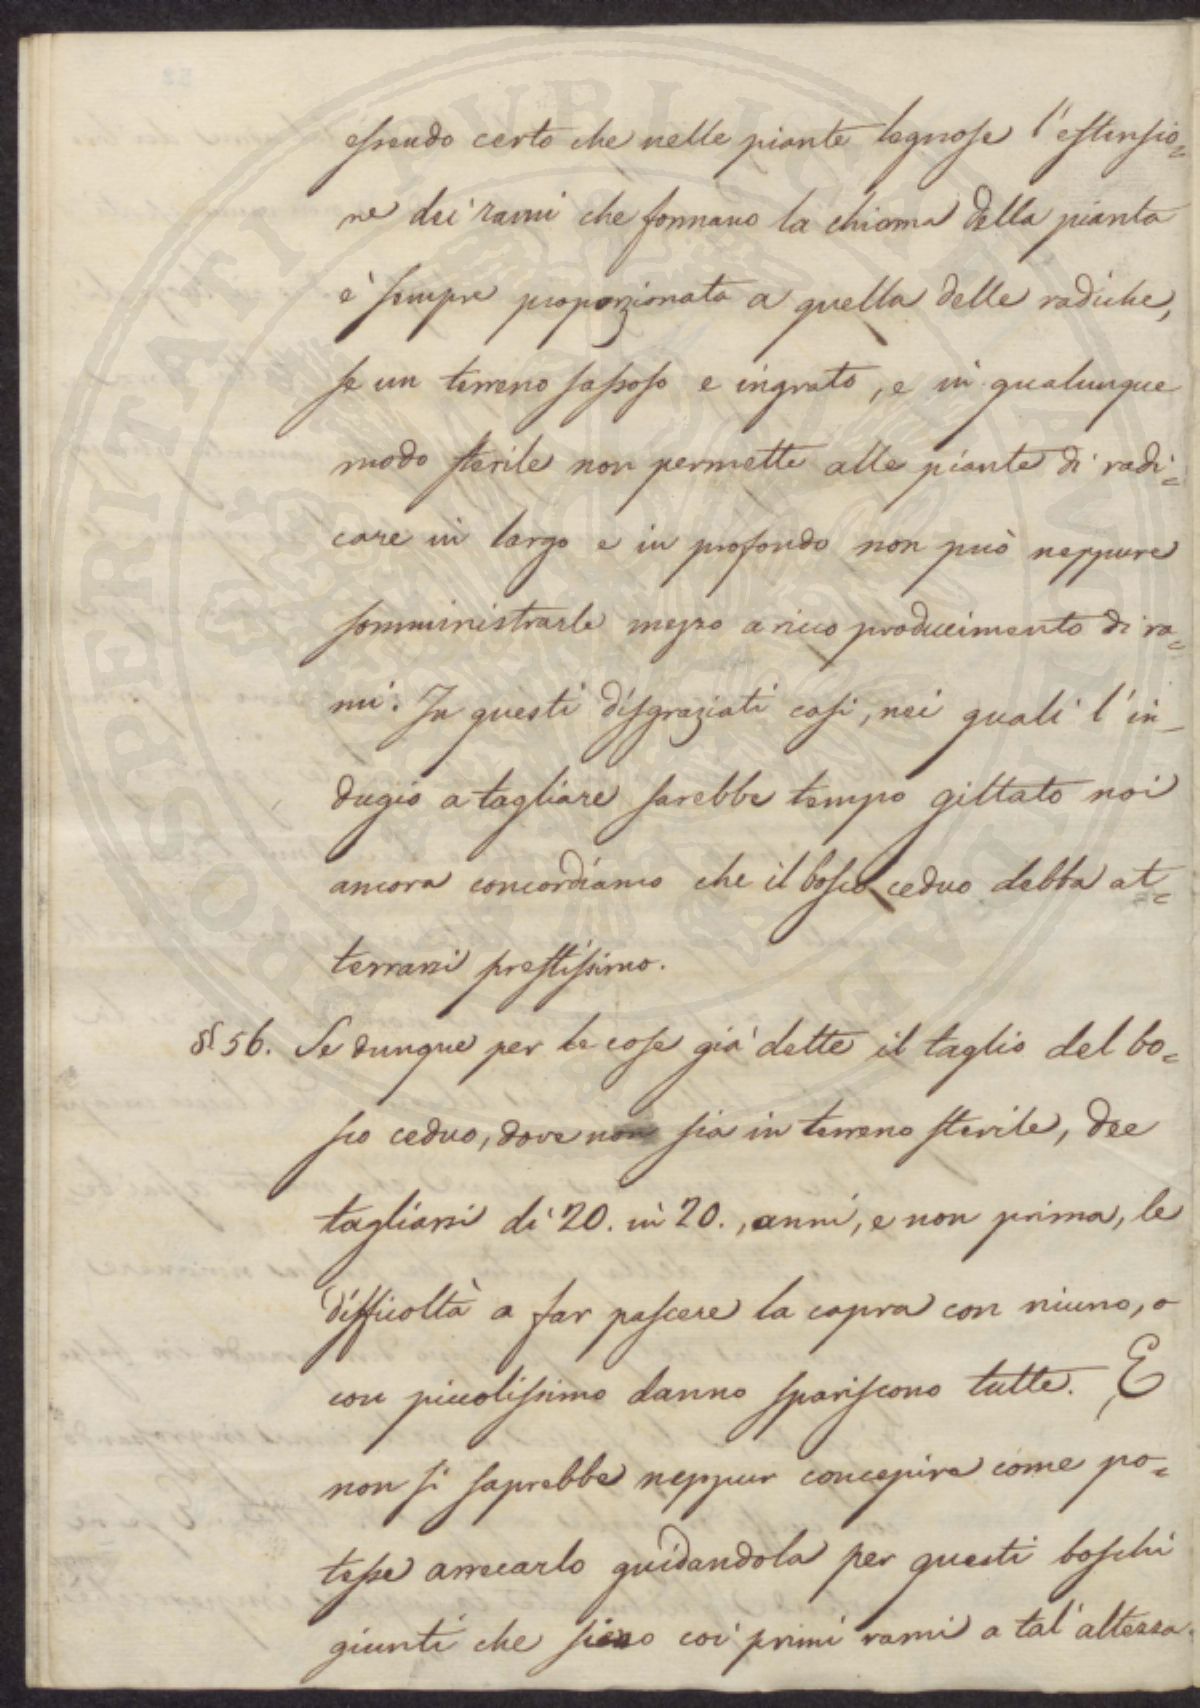 essendo certo che nelle piante legnose l'estensio=
ne dei rami che formano la chioma della pianta
è sempre proporzionata a quella delle radiche,
se un terreno sassoso e ingrato, e in qualunque
modo sterile non permette alle piante di radi=
care in largo e in profondo non può neppure
somministrarle mezzo a ricco producimento di ra=
mi. In questi disgraziati casi, nei quali l'in-
dugio a tagliare sarebbe tempo gittato noi
ancora concordiamo che il bosco ceduo debba at=
terrarsi prestissimo.
§ 56. Se dunque per le cose già dette il taglio del bo=
sco ceduo, dove non sia in terreno sterile, dee
tagliarsi di 20. in 20., anni, e non prima, le
difficoltà a far pascere la capra con niuno, o
con piccolissimo danno spariscono tutte. E
non si saprebbe neppur concepire come po=
tesse arrecarlo guidandola per questi boschi
giunti che sieno coi primi rami a tal'altezza.
PUBLICAE
PROSPERITATI